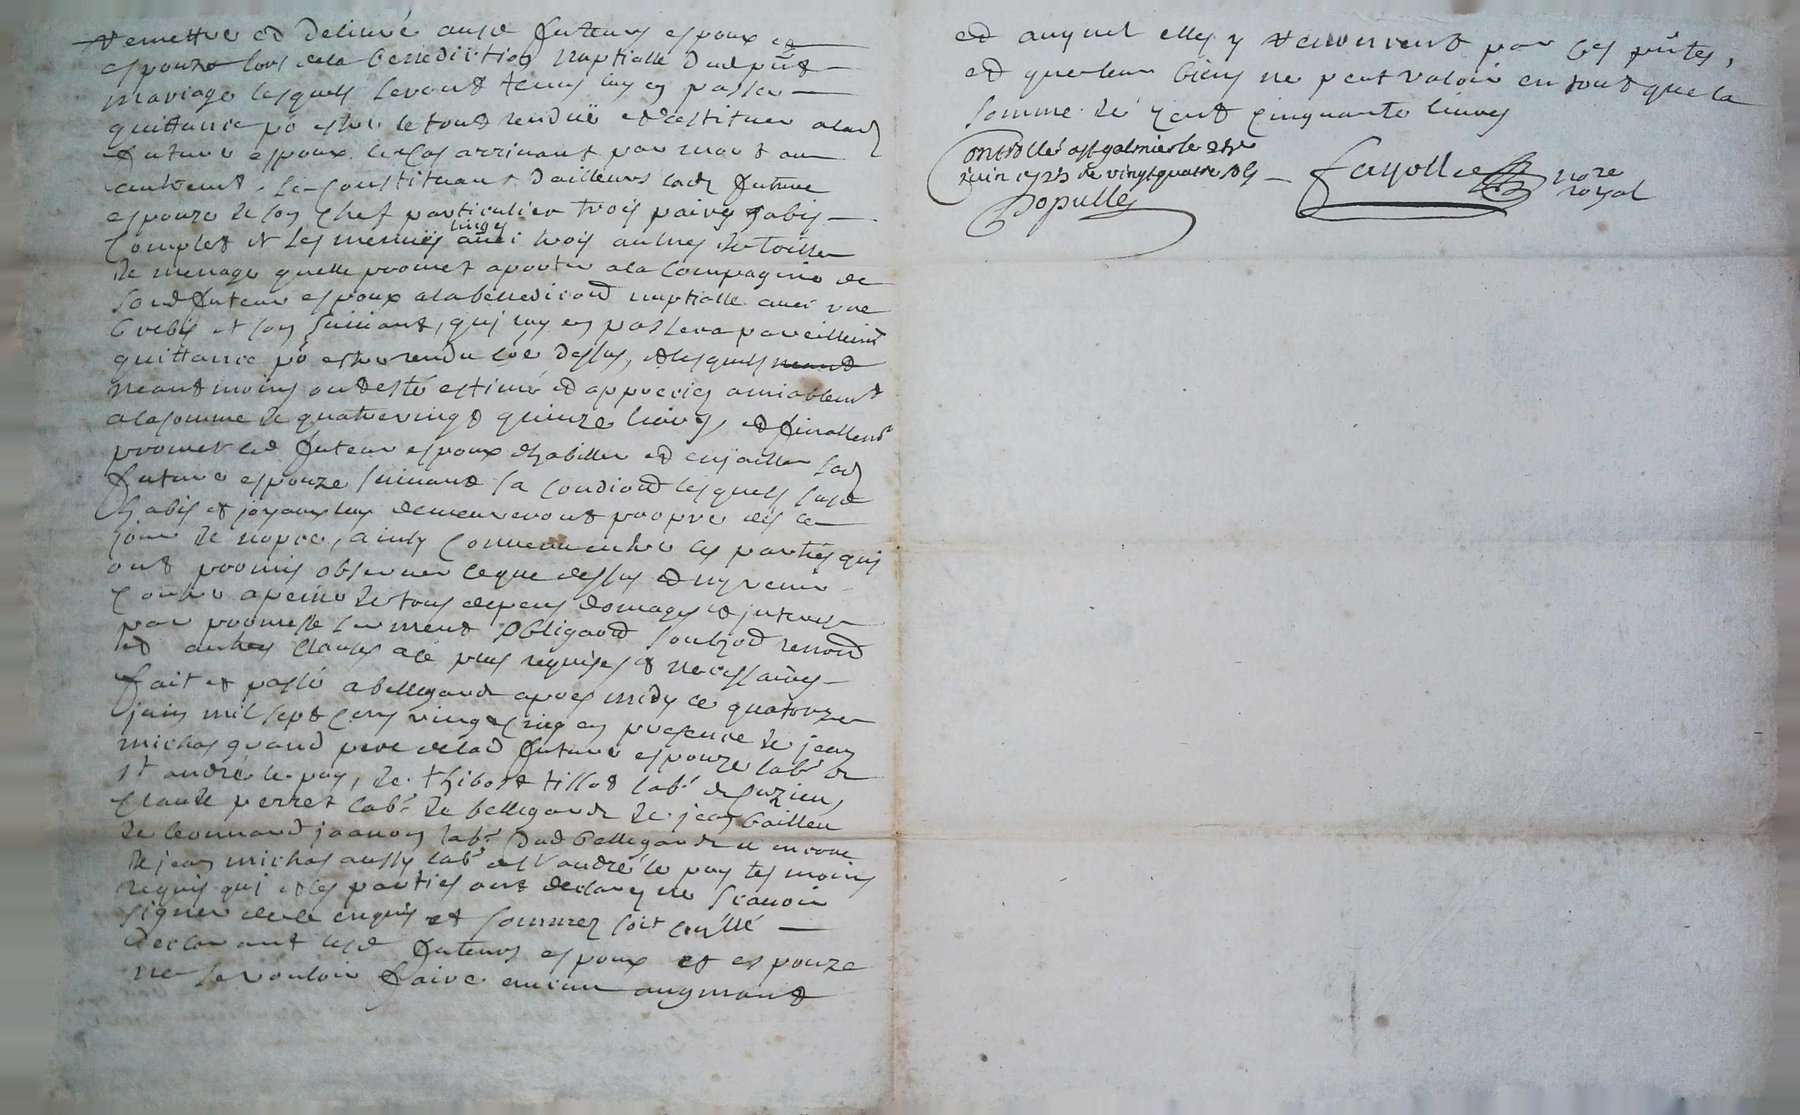 remettre et delivré ausd futeurs espoux et
espouze lors de la benediction nuptialle dud pñt
mariage lesquels seront tenus luy en passer
quittance po estre le tout rendüe et restituer a lad
future espouze le cas arrivant par mort ou
autrement. Se constituant d'ailleurs lad future
espouze de son chef particulier trois paires habis
complet et les mesmes linges avec trois autres de toille
de menage quelle promet aporter a la compagnie de
sond futeur espoux a la benedicond nuptialle avec une
brebis et son suivant, qui luy en passera pareillemt
quittance po estre rendu coe dessus, et lesquels neant
neantmoins ont esté estimé et appreciez amiablemt
a la somme de quatrevingt quinze livres, et finallemt
promet led futeur espoux dhabiller et enjoailler lad
future espouze suivant sa condiond lesquels susd
habis et joyaux luy demeureront propre des le
jour de nopce, ainsy convenu entre les parties qui
ont promis observer ce que dessus et ny venir
contre a peine de tous depens domages et interest
par promesse serment obligaond soubzond renond
et autres clauses a ce plus requises et necessaires
fait et passé a bellegarde apres midy le quatorze
juin mil sept cens vingt cinq en presence de jean
michas grand pere de lad future espouze labr de
st andré le puy, de thibost tillot labr de cuzieu,
claude perret labr de bellegarde de jean bailleu
de leonnard joannon labr dud bellegarde et encore
de jean michas aussy labr de st andré le puy tesmoins
requis qui et les parties ont declarez ne scavoir
signer de ce enquis et sommez soit conllé
declarant lesd futeurs espoux et espouze
ne se vouloir faire aucun augmant
et auquel elles y renoncent par ces pñtes,
et que leur biens ne peut valoir en tout que la
somme de cent cinquante livres
Controllé a st galmier le 27e
juin 1725 de vingt quatre sols
Fayolle nore
royal
Popullé